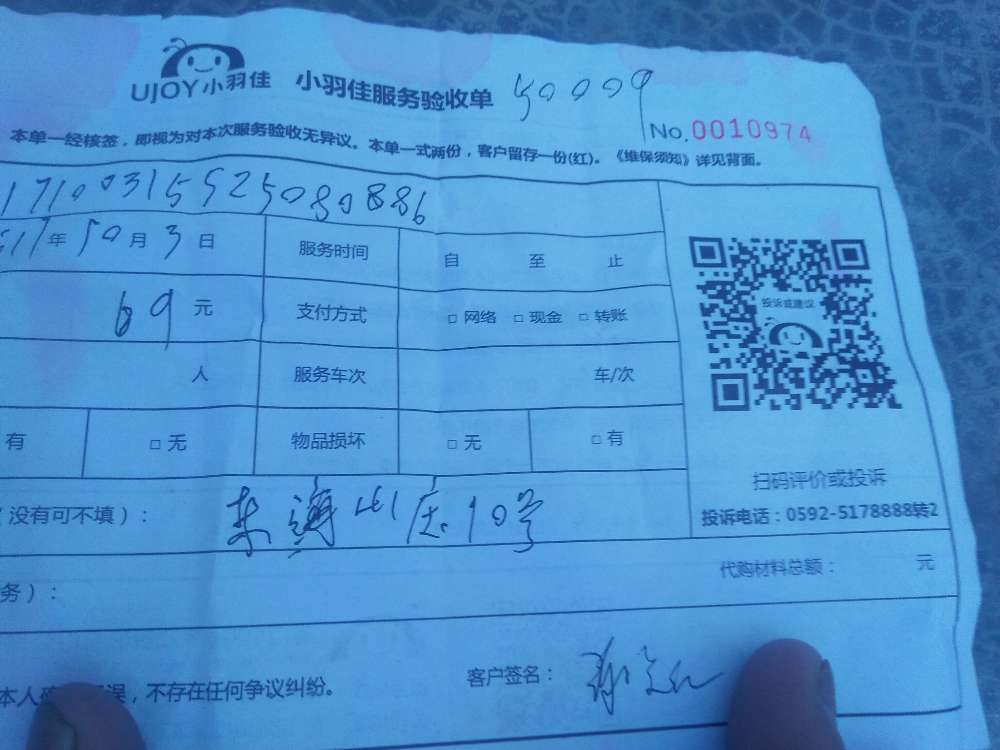 UJOY小羽佳 小羽佳服务验收单 50009
No.0010974
本单一经核签，即视为对本次服务验收无异议。本单一式两份，客户留存一份(红)。《维保须知》详见背面。
17100315525080886
17年10月3日 服务时间 自 至 止
69元 支付方式 □网络 □现金 □转账
投诉或建议
人 服务车次 车/次
有 □无 物品损坏 □无 □有
扫码评价或投诉
投诉电话：0592-5178888转2
（没有可不填）： 东海山庄10号
代购材料总额： 元
务）：
本人确 误，不存在任何争议纠纷。 客户签名：